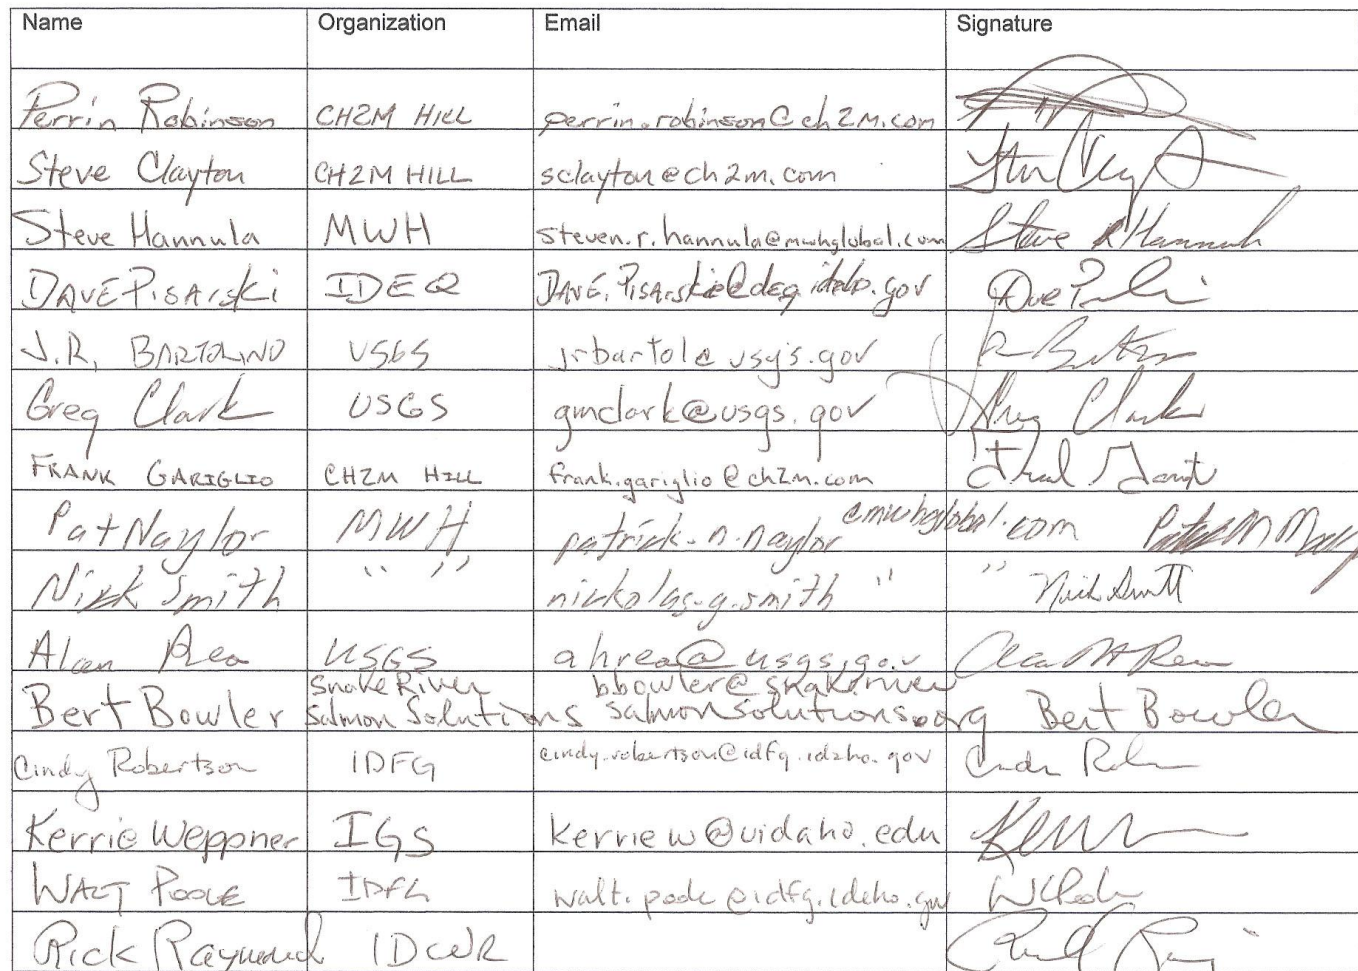 Name Organization Email Signature
Perrin Robinson CH2M HILL perrin.robinson@ch2m.com
Steve Clayton CH2M HILL sclayton@ch2m.com
Steve Hannula MWH steven.r.hannula@mwhglobal.com Steve R Hannula
DAVE PISARSKI IDEQ DAVE.PISARSKI@deq.idaho.gov
J.R. BARTOLINO USGS jrbartol@usgs.gov
Greg Clark USGS gmclark@usgs.gov Greg Clark
FRANK GARIGLIO CH2M HILL frank.gariglio@ch2m.com
Pat Naylor MWH patrick.n.naylor @mwhglobal.com
Nick Smith " " nickolas.g.smith " " Nick Smith
Alan Rea USGS ahrea@usgs.gov
Snake River bbowler@snakeriver
Bert Bowler Salmon Solutions salmonsolutions.org Bert Bowler
Cindy Robertson IDFG cindy.robertson@idfg.idaho.gov
Kerrie Weppner IGS kerriew@uidaho.edu
WALT POOLE IDFG walt.poole@idfg.idaho.gov
Rick Raymond IDWR